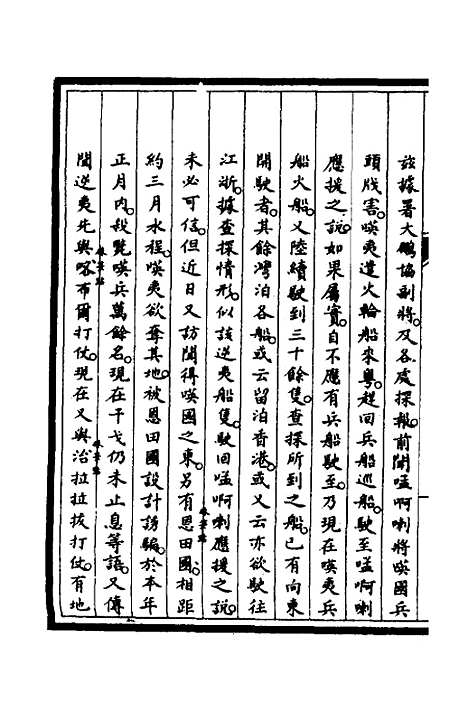 茲據署大鵬協副將。及各處探報。前聞嗌啊喇將𠸄國兵
頭戕害。𠸄夷遣火輪船來粵。趕回兵船巡船。駛至嗌啊喇
應援之說。如果屬實。自不應有兵船駛至。乃現在𠸄夷兵
船火船。又陸續駛到三十餘隻。查探所到之船。已有向東
開駛者。其餘灣泊各船。或云留泊香港。或又云亦欲駛往
江浙。據查探情形。似該逆夷船隻。駛回嗌啊喇應援之說。
未必可信。但近日又訪聞得𠸄國之東。另有恩田國。相距
約三月水程。𠸄夷欲奪其地。被恩田國設計誘騙。於本年
正月內。殺斃𠸄兵萬餘名。現在干戈仍未止息等語。又傳
聞逆夷先與喀布爾打仗。現在又與治拉拉拔打仗。有地